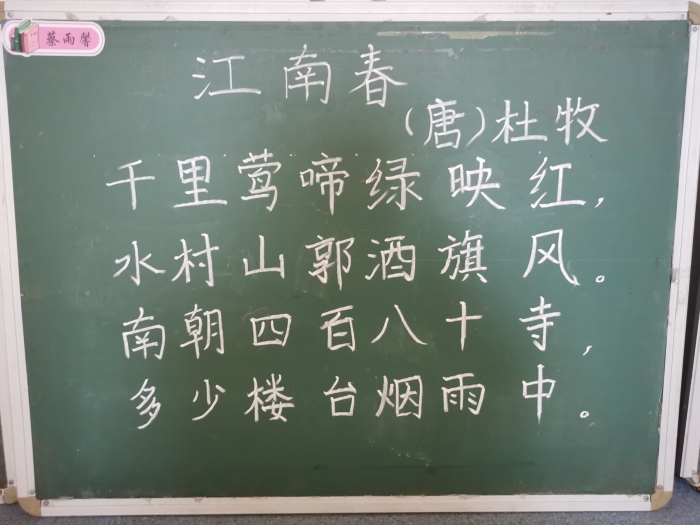 蔡雨馨
江南春
（唐）杜牧
千里莺啼绿映红，
水村山郭酒旗风。
南朝四百八十寺，
多少楼台烟雨中。